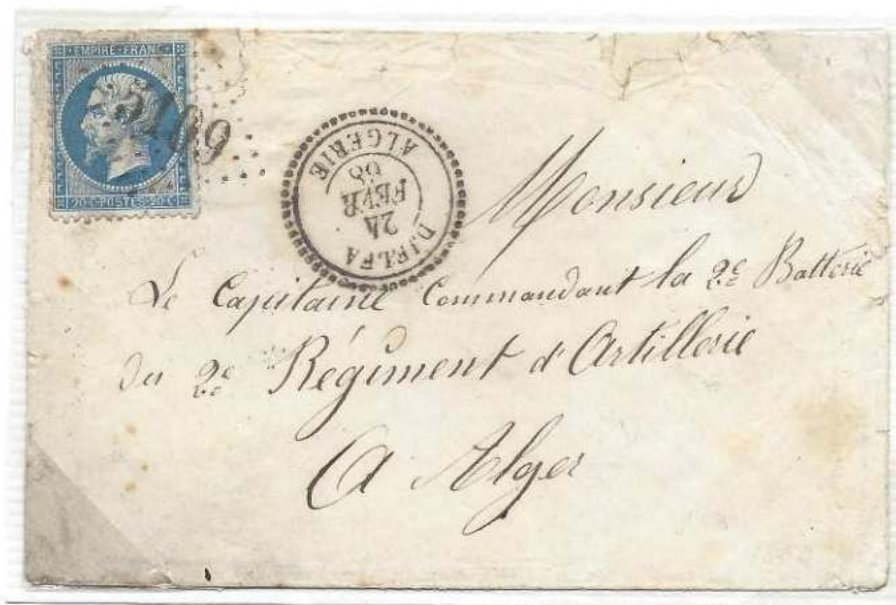 EMPIRE · FRANC ·
5109
20 C POSTES 20 C
DJELFA
24
FEVR
68
ALGERIE
Monsieur
Le Capitaine Commandant la 2e Batterie
du 2e Régiment d'Artillerie
A Alger